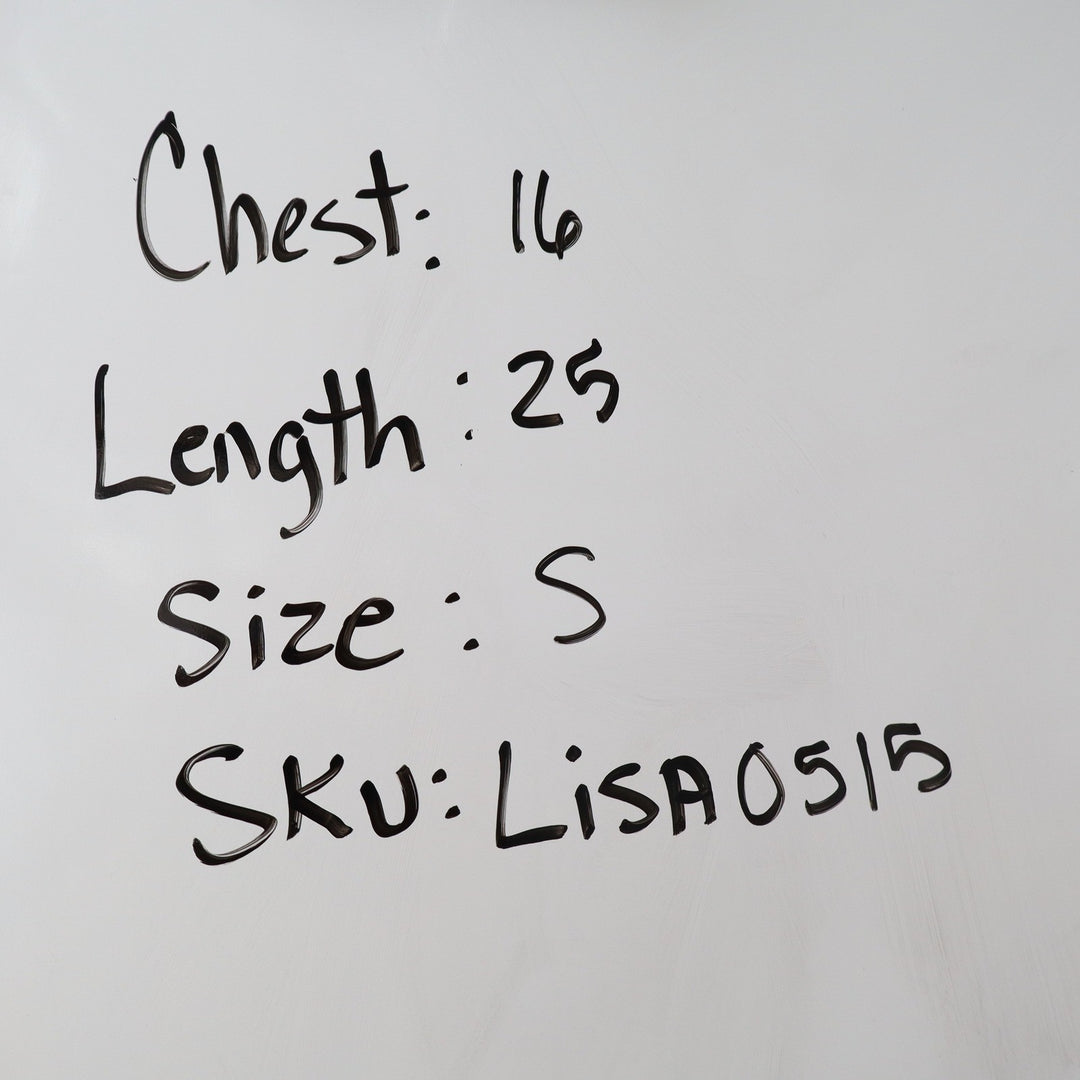 Chest: 16
Length: 25
Size: S
SKU: LiSA0515